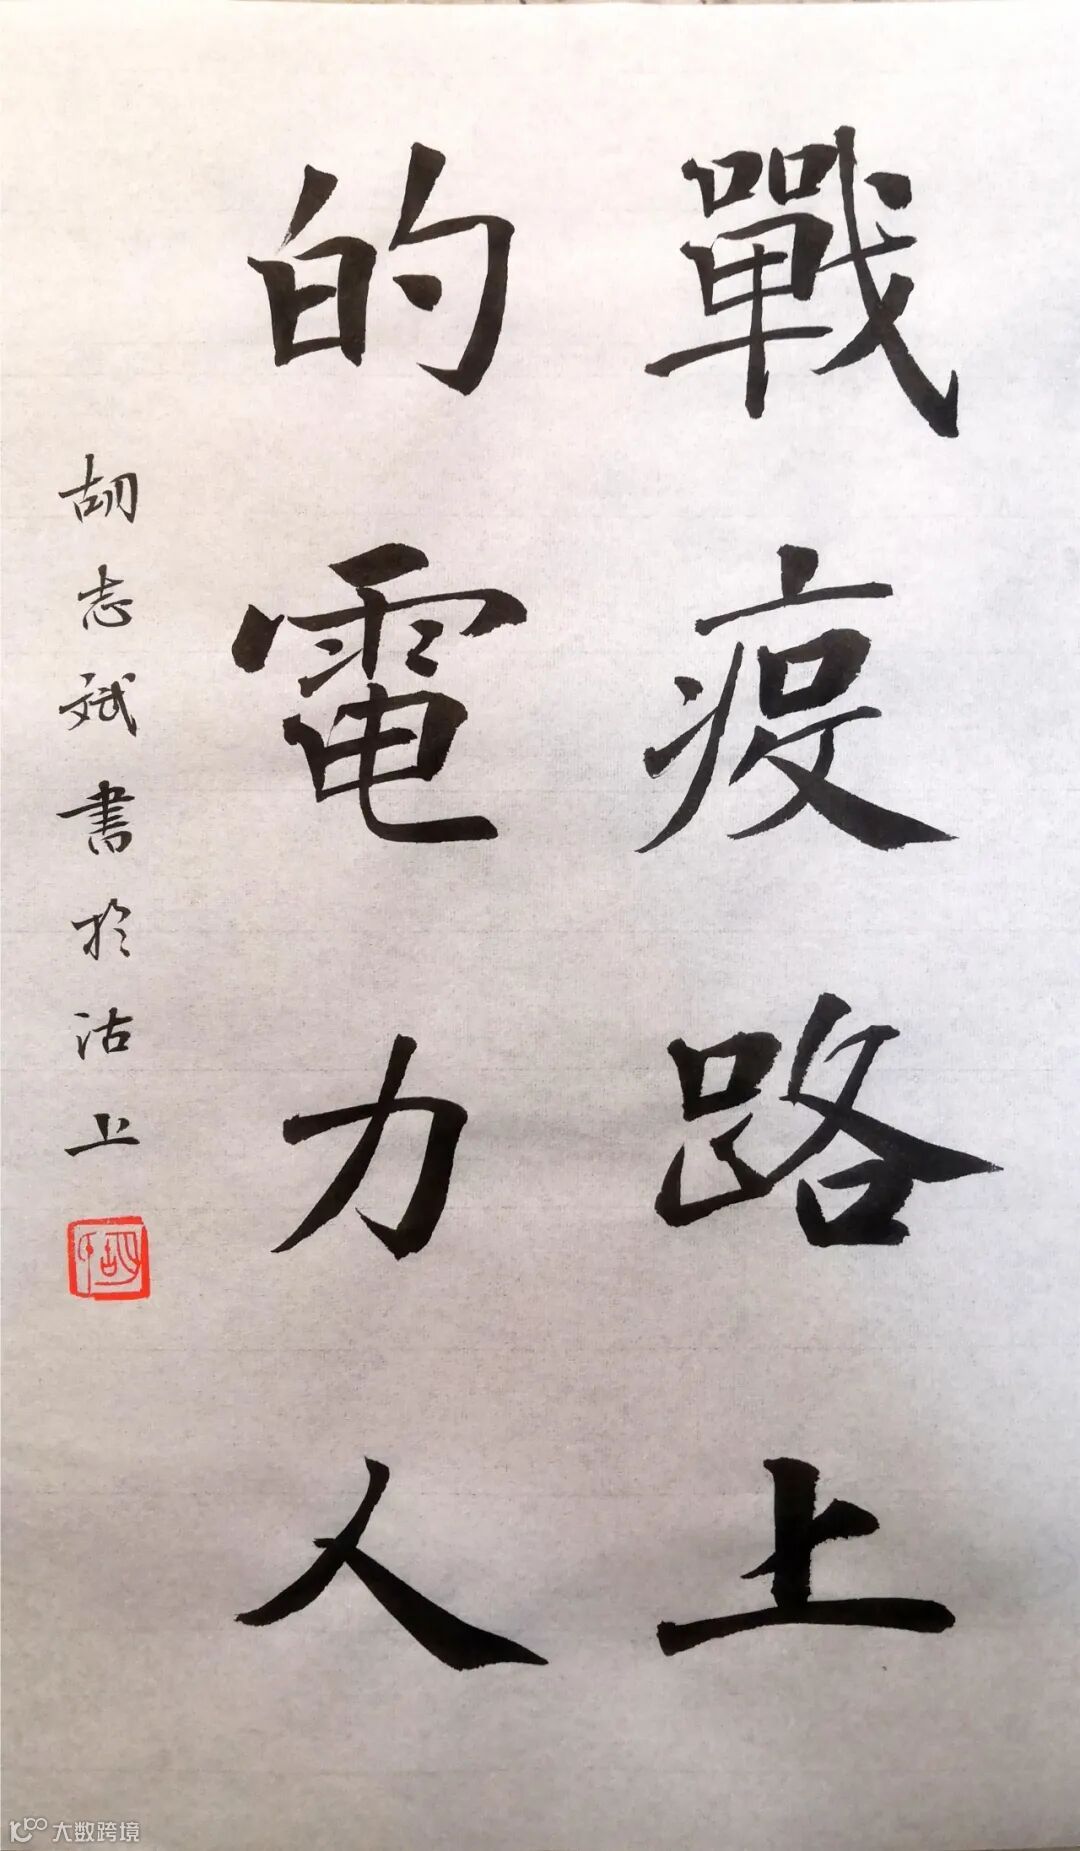 戰疫路上
的電力人
胡志斌書於沽上
大数跨境